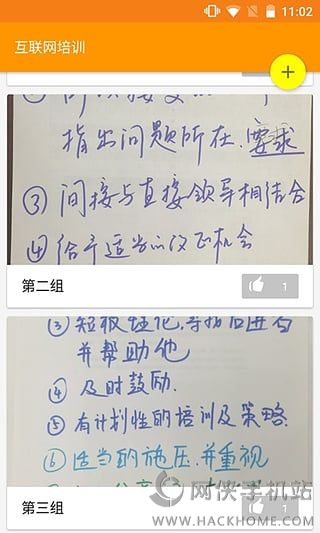 11:02
互联网培训
+
指出问题所在.要求
③ 间接与直接领导相结合
④ 给予适当的改正机会
第二组
1
并帮助他
④ 及时鼓励.
⑤ 有计划性的培训及策略
⑥ 适当的施压.并重视
第三组
1
网侠手机站
WWW.HACKHOME.COM